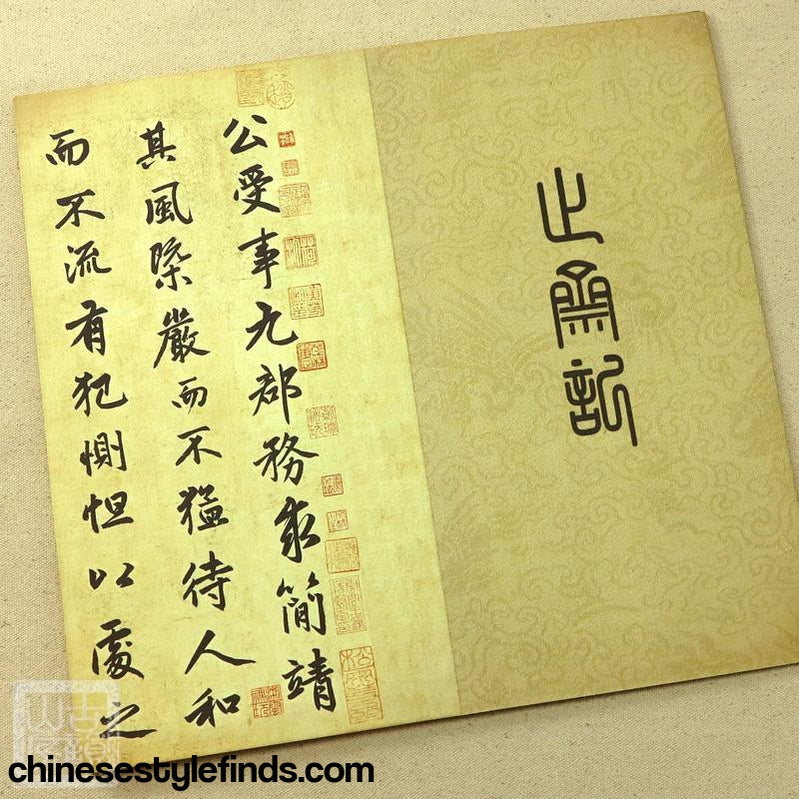 止齋記
公受事九郡務求簡靖
其風槩嚴而不猛待人和
而不流有犯惻怛以處之
chinesestylefinds.com